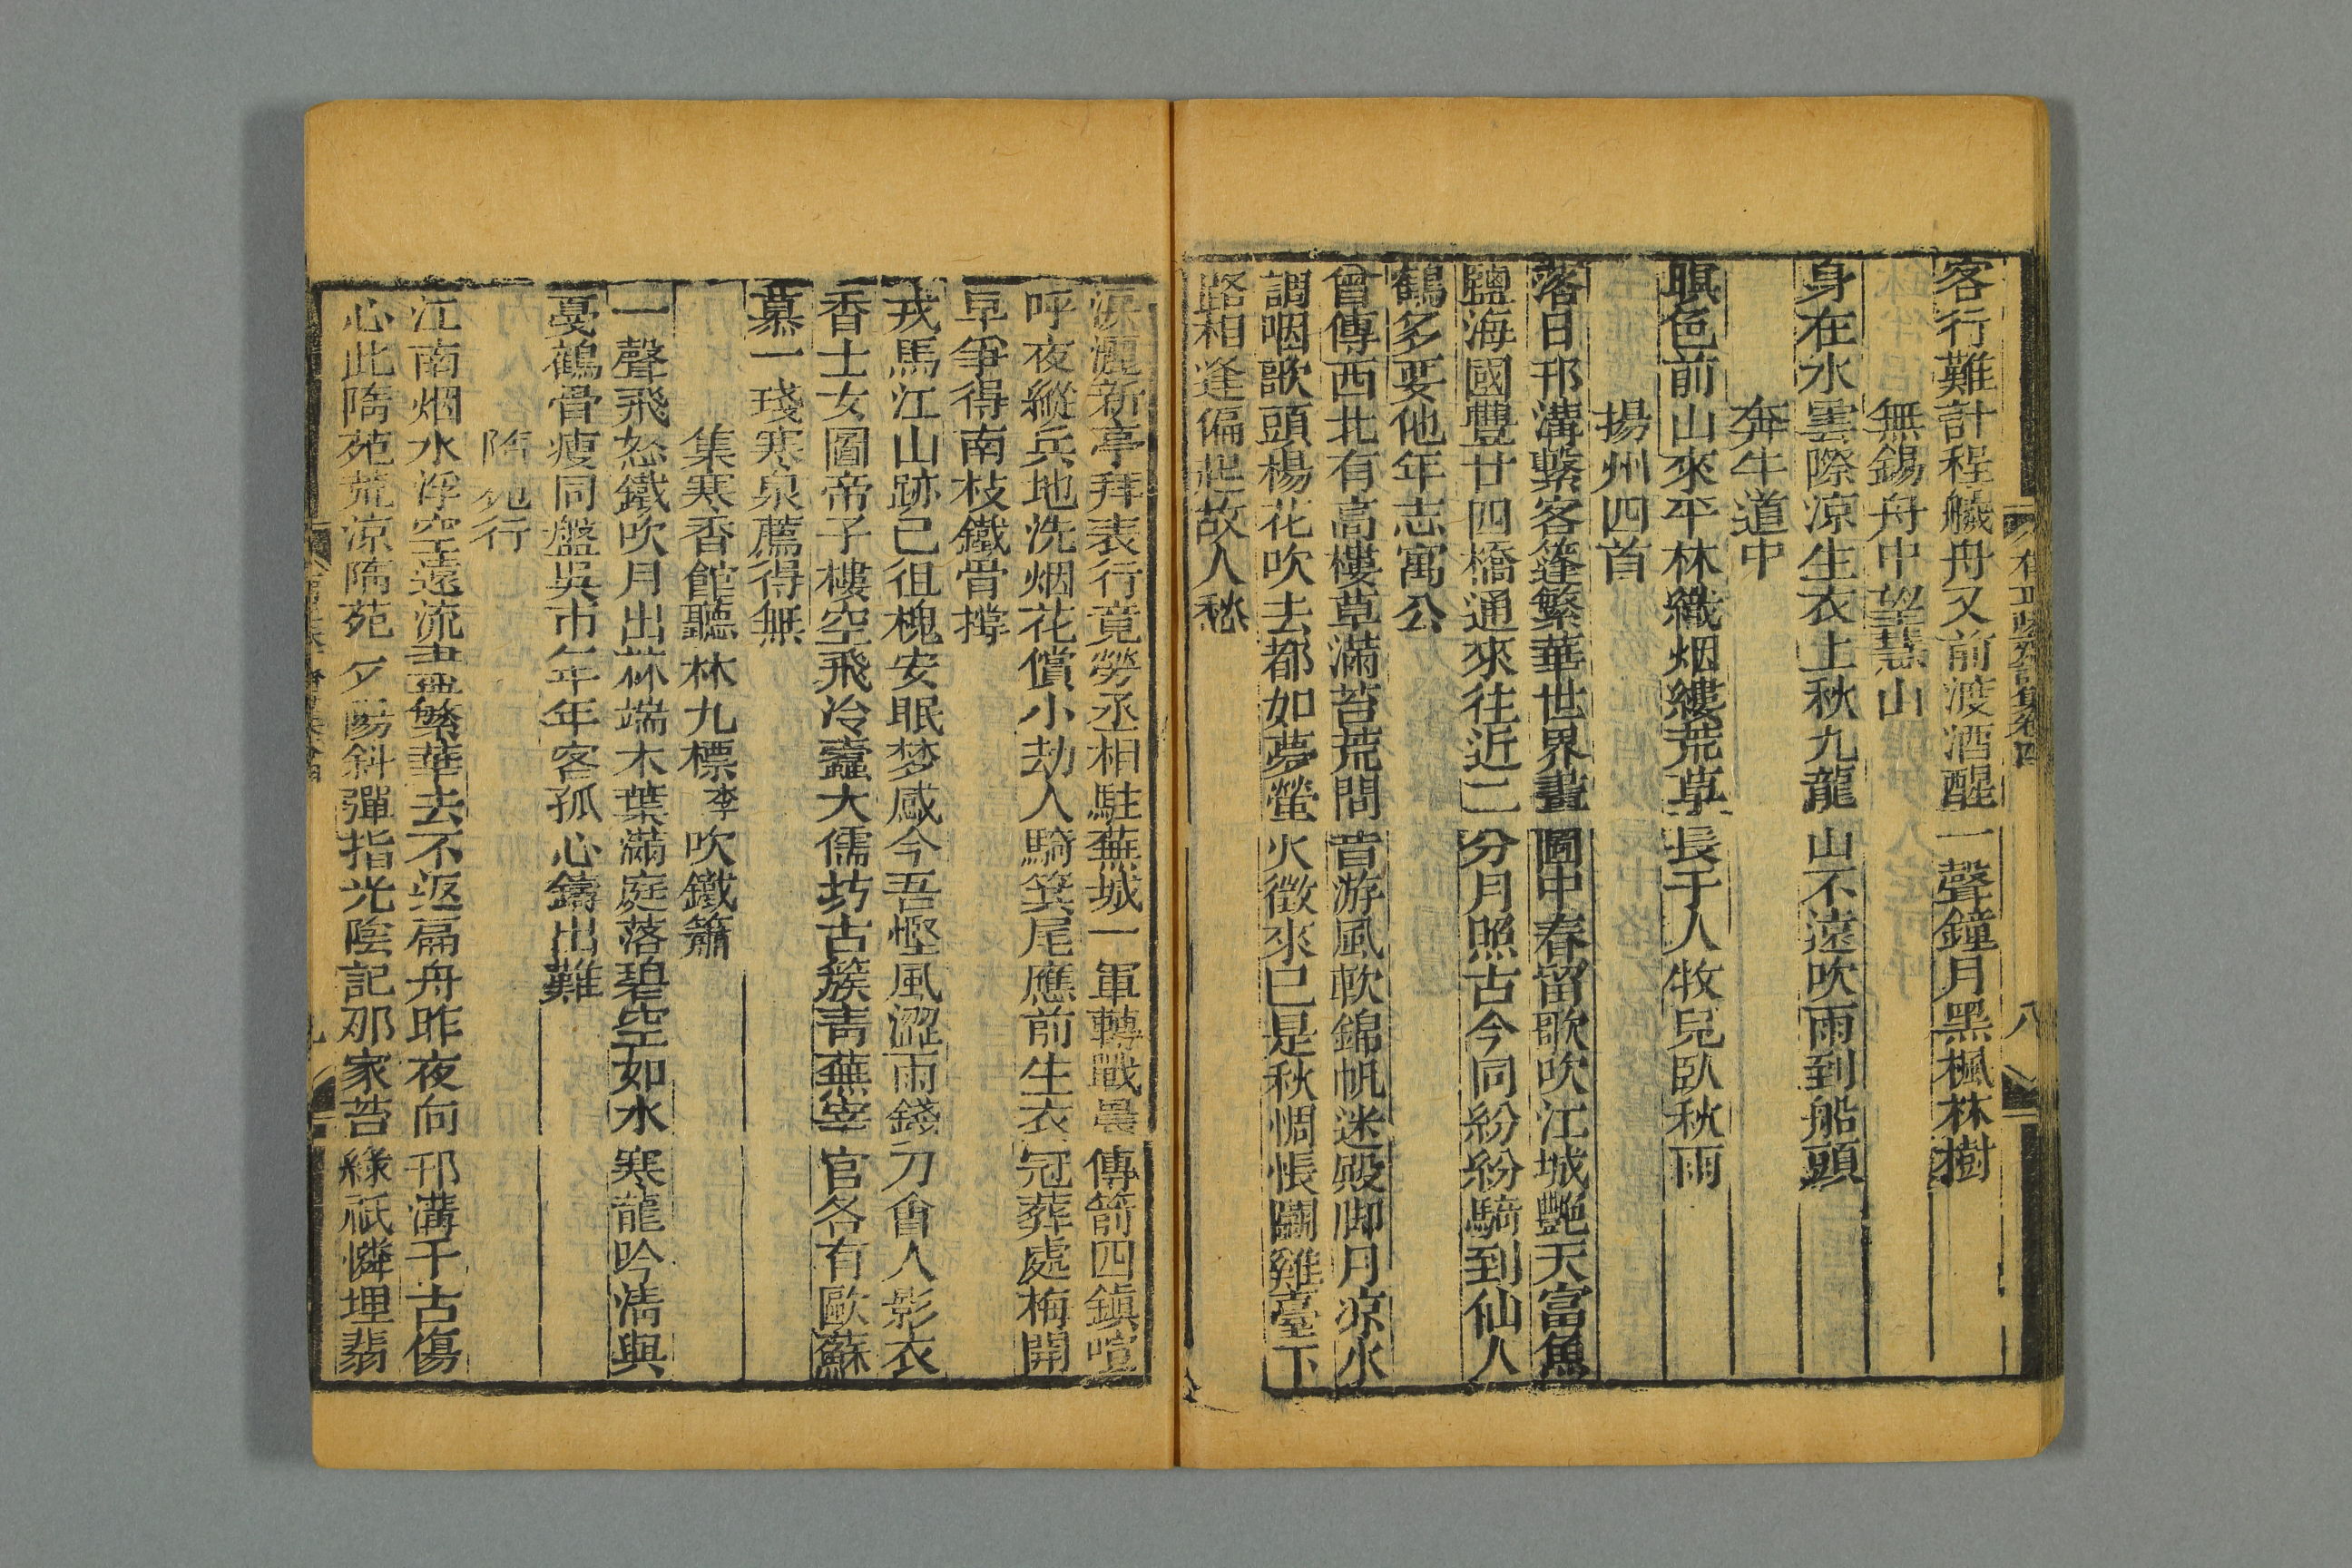 客行難計程艤舟又前渡酒醒一聲鐘月黑楓林樹
無錫舟中望慧山
身在水雲際凉生衣上秋九龍山不遠吹雨到船頭
奔牛道中
暝色前山來平林織烟縷荒草長于人牧兒臥秋雨
揚州四首
落日邗溝繫客篷繁華世界畫圖中春留歌吹江城艷天富魚
鹽海國豐廿四橋通來往近二分月照古今同紛紛騎到仙人
鶴多要他年志寓公
曾傳西北有高樓草滿苔荒問昔游風軟錦帆迷殿脚月凉水
調咽歌頭楊花吹去都如夢螢火徵來已是秋惆悵鬬雞臺下
路相逢偏起故人愁
八
淚灑新亭拜表行竟勞丞相駐蕪城一軍轉戰晨傳箭四鎮喧
呼夜縱兵地洗烟花償小劫人騎箕尾應前生衣冠葬處梅開
早爭得南枝鐵骨撐
戎馬江山跡已徂槐安眠梦感今吾慳風澀雨錢刀會人影衣
香士女圖帝子樓空飛冷蠹大儒坊古簇靑蕪宰官各有歐蘇
慕一琖寒泉薦得無
集寒香館聽林九標李吹鐵簫
一聲飛怒鐵吹月出林端木葉滿庭落碧空如水寒龍吟淸與
戞鶴骨瘦同盤吳市年年客孤心鑄出難
隋苑行
江南烟水浮空遠流盡繁華去不返扁舟昨夜向邗溝千古傷
心此隋苑荒凉隋苑夕陽斜彈指光陰記那家苔綠祇憐埋翡